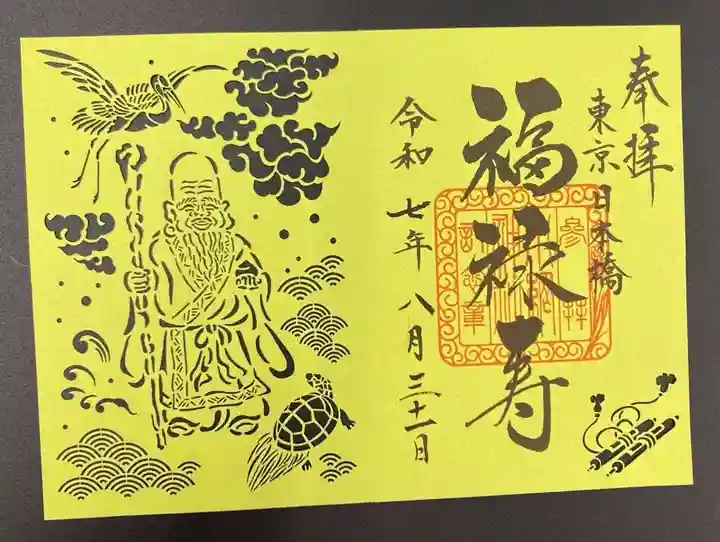 奉拝
東京日本橋
福禄寿
令和七年八月三十一日